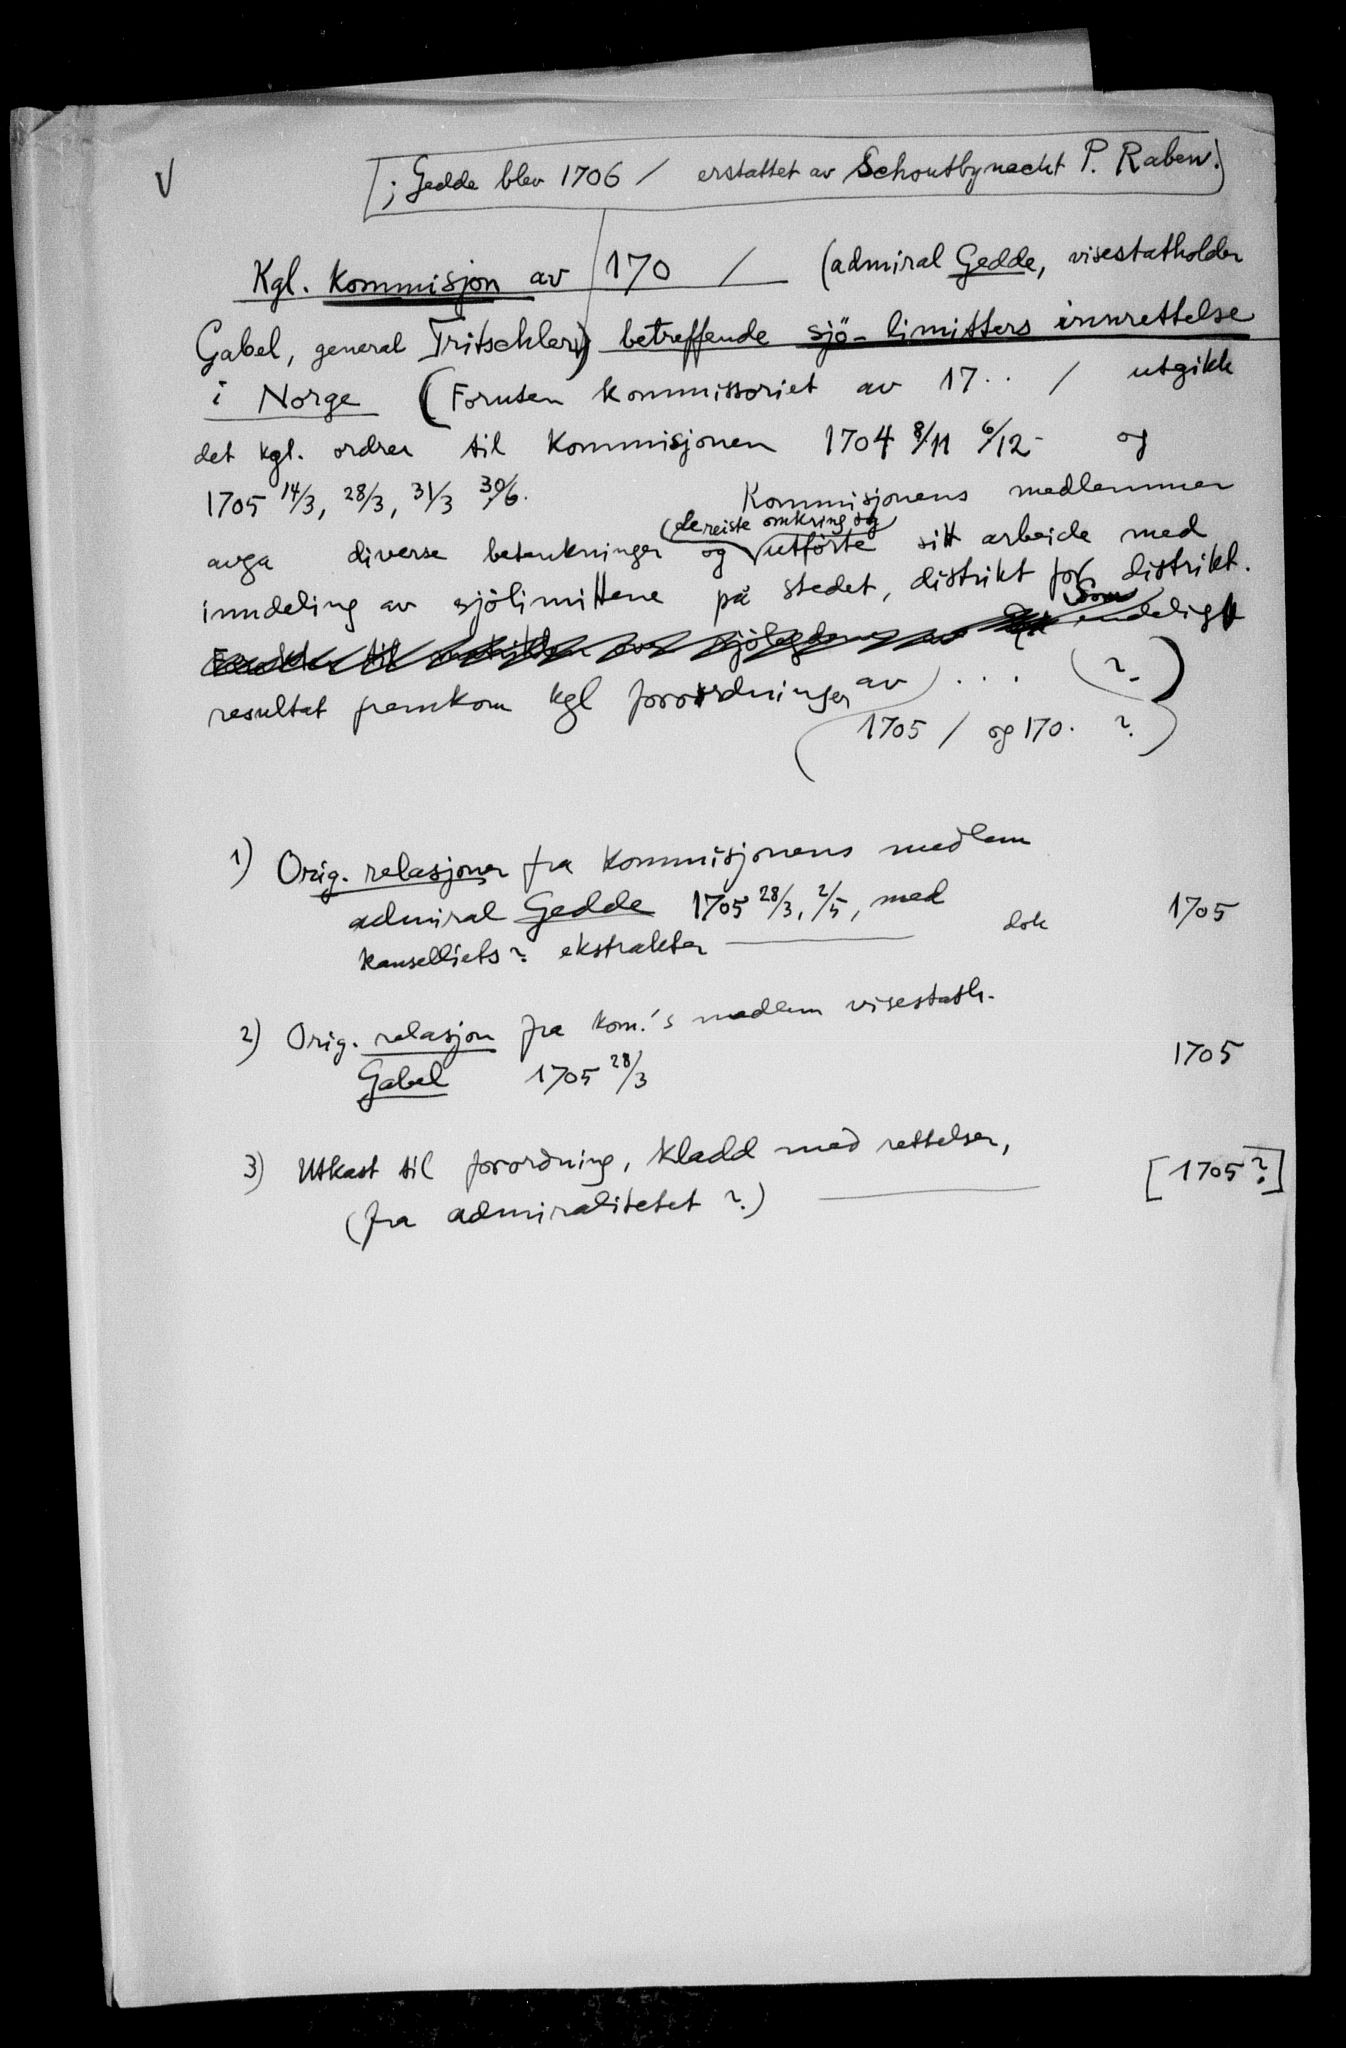 V
[; Gedde blev 1706 / erstattet av Schoutbynacht P. Raben.]
Kgl. kommisjon av 170 / (admiral Gedde, visestatholder
Gabel, general Tritschler) betreffende sjö-limitters innrettelse
i Norge (Foruten kommissoriet av 17.. / utgikk
det kgl. ordrer til kommisjonen 1704 8/11 6/12 - og
1705 14/3, 28/3, 31/3 30/6. Kommisjonens medlemmer
avga diverse betenkninger og (de reiste omkring og) utførte sitt arbeide med
inndeling av sjölimittene på stedet, distrikt for distrikt.
Som endeligt
resultat fremkom kgl forordninger av .... (?)
(1705 / og 170. ?)
1) Orig. relasjoner fra kommisjonens medlem
admiral Gedde 1705 28/3, 2/5, med
kanselliets? ekstrakter dok 1705
2) Orig. relasjon fra kom.'s medlem visestath.
Gabel 1705 28/3 1705
3) Utkast til forordning, kladd med rettelser,
(fra admiralitetet ?) [1705 ?]